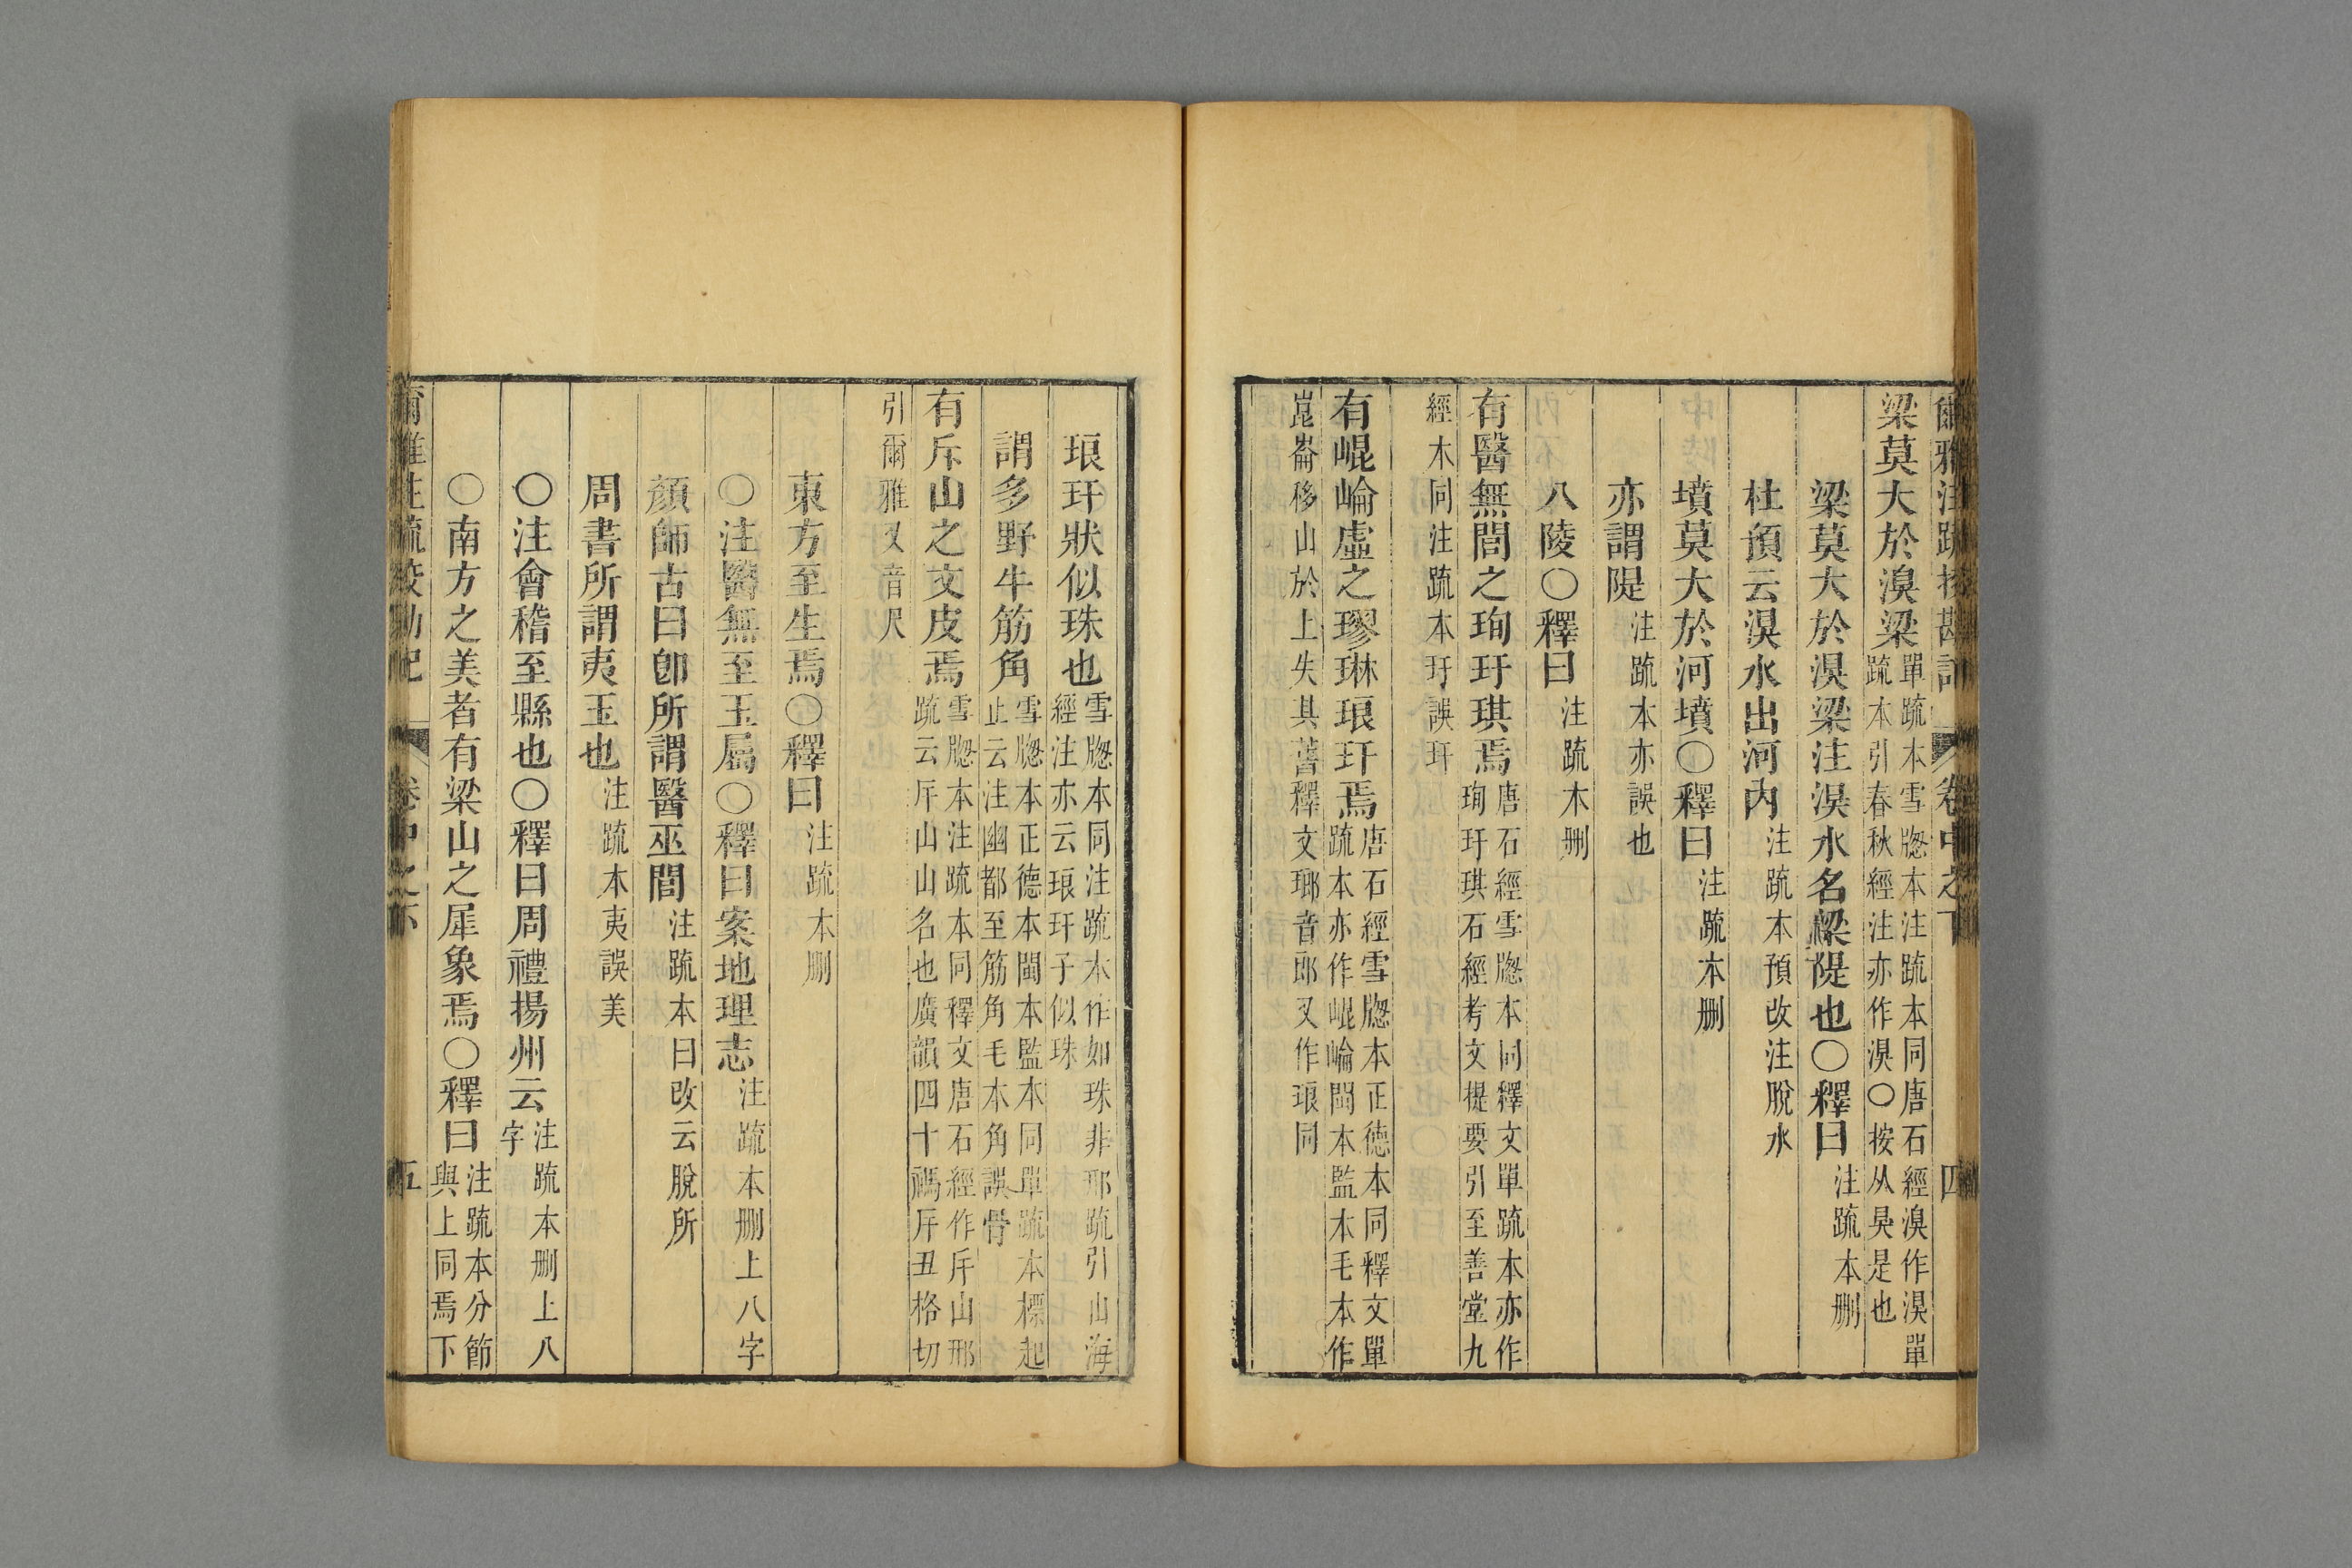 爾雅注疏挍勘記 卷中之下 四
梁莫大於湨梁單疏本雪牕本注疏本同唐石經湨作淏單疏本引春秋經注亦作淏○按从狊是也
梁莫大於淏梁注淏水名梁隄也○釋曰注疏本刪
杜預云淏水出河內注疏本預改注脫水
墳莫大於河墳○釋曰注疏本刪
亦謂隄注疏本亦誤也
八陵○釋曰注疏本刪
有醫無閭之珣玗琪焉唐石經雪牕本同釋文單疏本亦作珣玗琪石經考文提要引至善堂九
經本同注疏本玗誤玕
有崐崘虛之璆琳琅玕焉唐石經雪牕本正德本同釋文單疏本亦作崐崘閩本監本毛本作
崑崙移山於上失其舊釋文瑯音郎又作琅同
琅玕狀似珠也雪牕本同注疏本作如珠非邢疏引山海經注亦云琅玕子似珠
謂多野牛筋角雪牕本正德本閩本監本同單疏本標起止云注幽都至筋角毛本角誤骨
有斥山之文皮焉雪牕本注疏本同釋文唐石經作斥山邢疏云斥山山名也廣韻四十禡斥丑格切
引爾雅又音尺
東方至生焉○釋曰注疏本刪
○注醫無至玉屬○釋曰案地理志注疏本刪上八字
顏師古曰卽所謂醫巫閭注疏本曰改云脫所
周書所謂夷玉也注疏本夷誤美
○注會稽至縣也○釋曰周禮揚州云注疏本刪上八字
○南方之美者有梁山之犀象焉○釋曰注疏本分節與上同焉下
爾雅注疏挍勘記 卷中之下 五